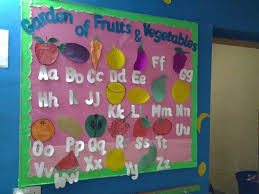 Garden of Fruits & Vegetables
Aa Bb Cc Dd Ee Ff Gg
Hh Ii Jj Kk Ll Mm Nn
Oo Pp Qq Rr Ss Tt Uu
Vv Ww Xx Yy Zz